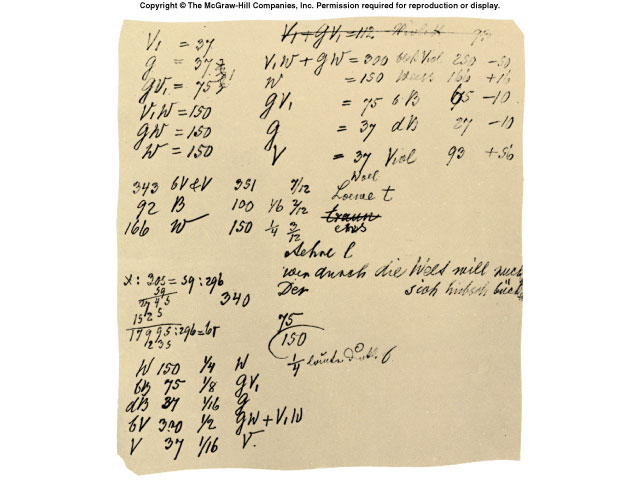 Copyright © The McGraw-Hill Companies, Inc. Permission required for reproduction or display.
V1 = 37
g = 37
gV1 = 75
V1W = 150
gW = 150
W = 150
V1 + gV1 = 112
V1W + gW = 300 250 -50
W = 150 166 +16
gV1 = 75 6B 65 -10
g = 37 dB 27 -10
V = 37 Viol 93 +56
343 6V & V 351 7/12
92 B 100 1/6 2/12
166 W 150 1/4 3/12
Loewe t
Sehne l
wer durch die Welt will
Der sich hübsch
x : 305 = 59 : 296
59
2745
1525
17995 : 296 =
340
75
150
1/4
W 150 1/4 W
6B 75 1/8 gV1
dB 37 1/16 g
6V 300 1/2 gW + V1W
V 37 1/16 V.